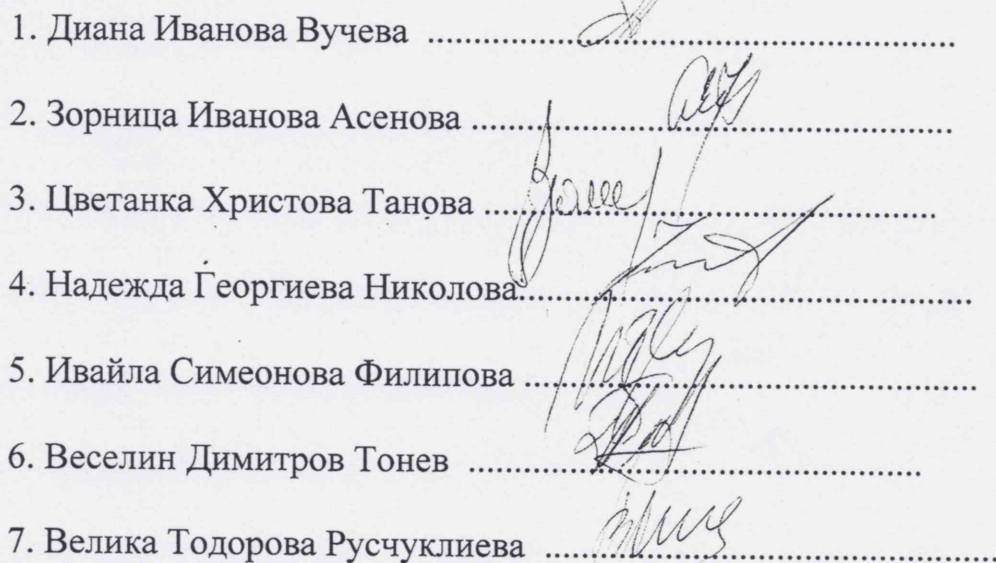 1. Диана Иванова Вучева ..........................................................
2. Зорница Иванова Асенова .....................................................
3. Цветанка Христова Танова ..................................................
4. Надежда Георгиева Николова..................................................
5. Ивайла Симеонова Филипова ..................................................
6. Веселин Димитров Тонев ..................................................
7. Велика Тодорова Русчуклиева ..................................................